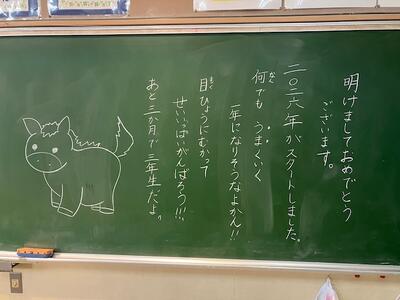 明けましておめでとう
ございます。
二〇二六年がスタートしました。
何でも うまくいく
一年になりそうなよかん!!
目ひょうにむかって
せいいっぱいがんばろう!!!
あと三か月で三年生だよ。